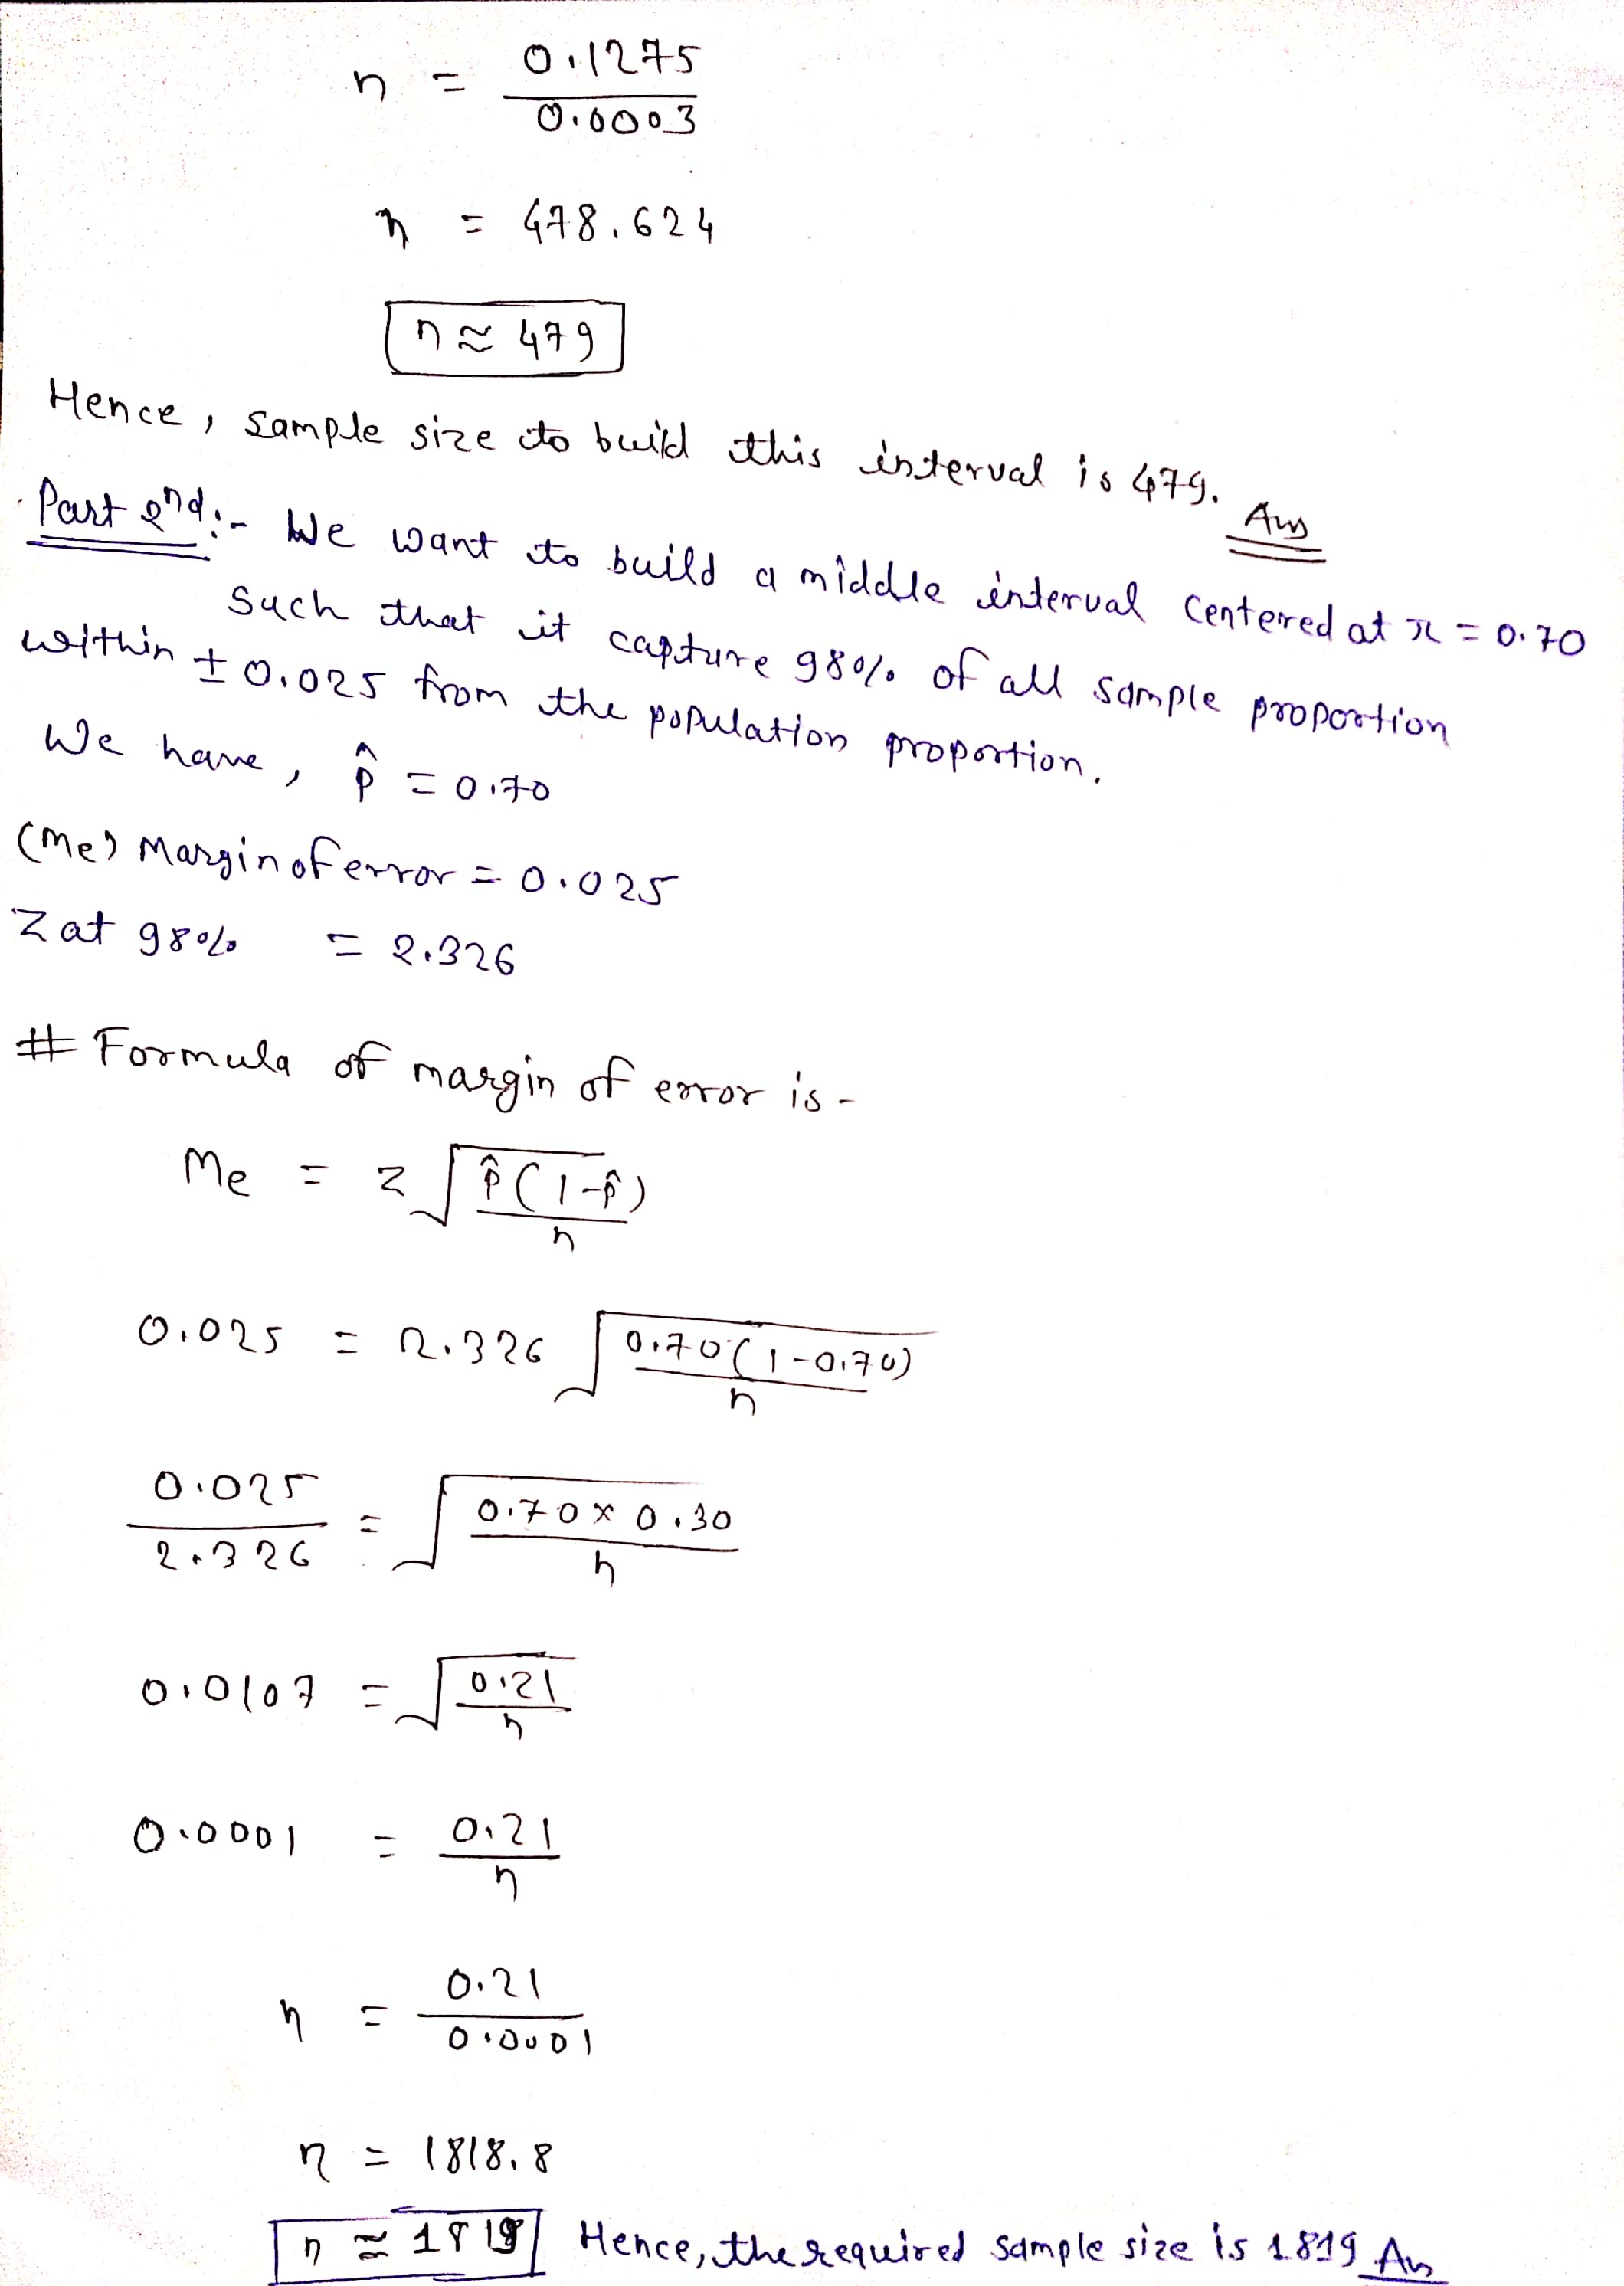 n = 0.1275 / 0.0003
n = 478.624
n ≈ 479
Hence, sample size to build this interval is 479. Ans
Part 2nd:- We want to build a middle interval centered at π = 0.70
such that it capture 98% of all sample proportion
within ± 0.025 from the population proportion.
We have, p̂ = 0.70
(Me) Margin of error = 0.025
Z at 98% = 2.326
# Formula of margin of error is -
Me = z √(p̂(1-p̂) / n)
0.025 = 2.326 √(0.70(1-0.70) / n)
0.025 / 2.326 = √(0.70 × 0.30 / n)
0.0107 = √(0.21 / n)
0.0001 = 0.21 / n
n = 0.21 / 0.0001
n = 1818.8
n ≈ 1819 Hence, the required sample size is 1819 Ans